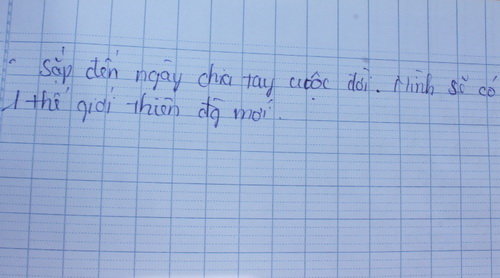 sắp đến ngày chia tay cuộc đời. Mình sẽ có
1 thế giới thiên đg mới.